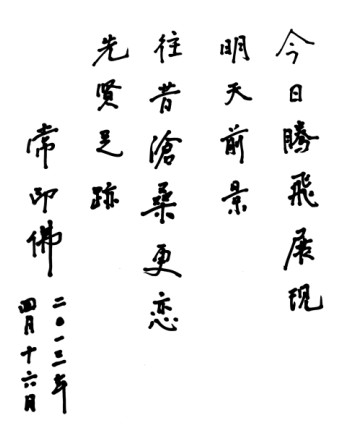 今日腾飛展现
明天前景
往昔滄桑更恋
先贤足跡
常印佛
二〇一三年
四月十六日